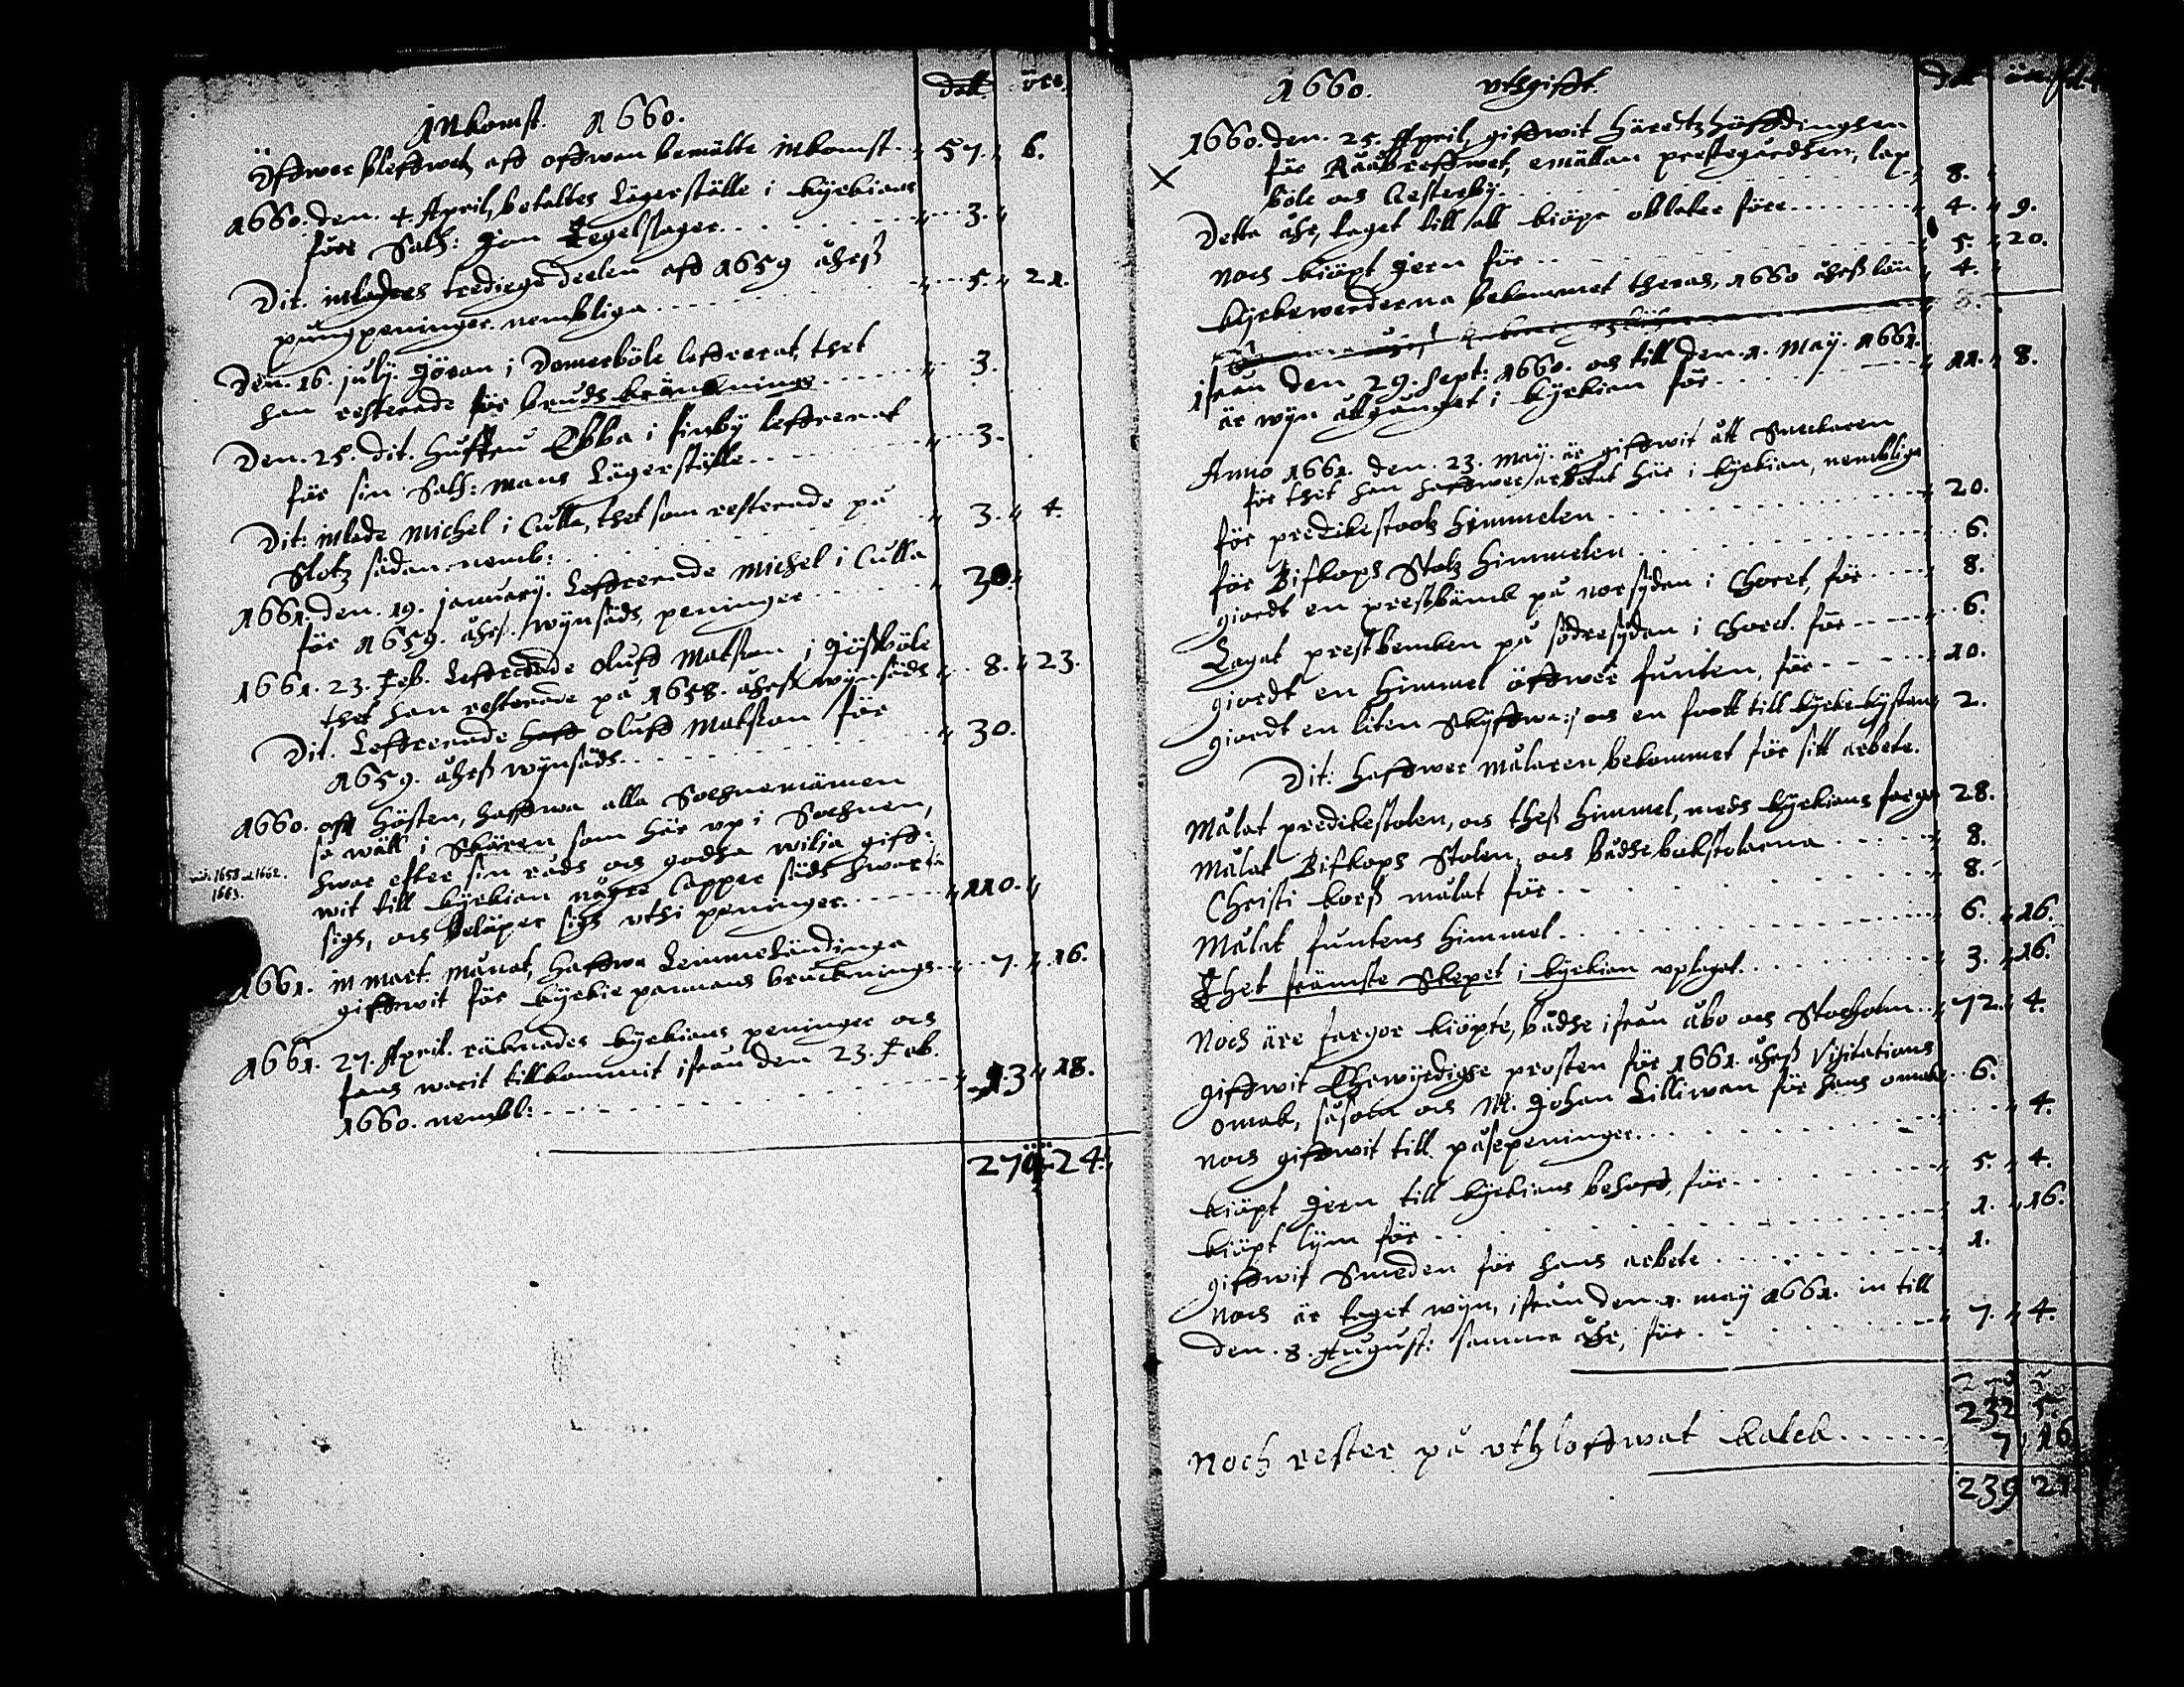 Inkomst. 1660. dall. öre.
Öffwer bleffwetz aff offwan bemälte inkomst. 57. 6.
1660. den. 4. April, betaltes Lägerställe i kyrkians
före Salh: Jon Tegelslager 3.
Dit. inlades trediege deelen aff 1659 åhrß
pungpeninger nembliga 5. 21.
Den. 16. julij. Jöran i Domerböle leffrerat, thet
han resterade för bruds kränkninge 3.
Den. 25. dit. Hustru Ebba i finby leffrerat
för sin Salh: mans Lägerställe 3.
Dit: inlade Michel i Culla, thet som resterade på
Slotz sädan nemb: 3. 4.
1661. den. 19. januarij. Leffrerade Michel i Culla
för 1659. åhrß. wynsäds peninger 30.
1661. 23. Feb. Leffrerade Oluff Matsson i Jösböle
thet han resterade på 1658. åhrß wynsäds 8. 23.
Dit. Leffrerade Oluff Matsson för
1659. åhrß wynsäds 30.
1660. oft Hösten, haffwa alla Sochnemännen
så wäll i Skären som här up i Sochnen,
hwar efter sin råds och godha wilja giff-
vid. 1658 1662.
1663.
wit till kyrkian någre Cappar sädt hwart
sigh, och belöper sigh uthi peninger 110.
1661. in mart. månat, haffwa Lemmeländinga
giffwit för kyrkie pannans brucknings 7. 16.
1661. 27. April. räknades kyrkians peninger och
fans warit tillkommit ifrån den 23. Feb.
1660. nembl: 13 18.
274 24.
1660. uthgifft. dal öre
1660. den. 25. April, giffwit Häredtz höffdingsen
för Rååbreffwet, emällan prestegårdhen, lap
böle och Kesterby 8.
Detta åhr, taget till att kiöpe oblater före 4. 9.
Noch kiöpt Jern för 5. 20.
Kyrkewerderna bekommet theras, 1660 åhrß lön 4.
ifrån den 29. Sept: 1660. och till den. 1. May. 1661.
är wyn åtgånget i kyrkian för 11. 8.
Anno 1661. den. 23. May. är giffwit ått Snickaren
för thet han haffwer arbetat här i kyrkian, nembliga
för predikestoolz Himmelen 20.
för Biskops Stolz Himmelen 6.
giordt en prestbänk på norsyden i Choret, för 8.
Lagat prestbenken på södresyden i Choret. för 6.
giordt en Himmel öffwer funten, för 10.
giordt en liten Skyffwa, och en foott till kyrkekystan 2.
Dit: haffwer målaren bekommet för sitt arbete.
Målat predikestolen, och theß Himmel, meds kyrkians fargo 28.
Målat Biskops Stolen, och bådhe bakstolarna 8.
Christi korß målat för 8.
Målat funtens Himmel 6. 16.
Thet främste Skepet i kyrkian uplagat 3. 16.
Noch äre fargor kiöpte, bådhe ifrån åbo och Stocholm 72. 4.
giffwit Ehrwyrdighe prosten för 1661. åhrß Visitations
omak, såsom och M. Johan Lilliwan för hans omak 6.
Noch giffwit till påsepeninger 4.
kiöpt Jern till kyrkians behoff, för 5. 4.
kiöpt lym för 1. 16.
giffwit Smeden för hans arbete 1.
Noch är taget wyn, ifrån den. 1. may 1661. in till
den. 8. August: samma åhr, för 7. 4.
232 5.
Noch rester på uthloffwat kalck 7 16
239 21